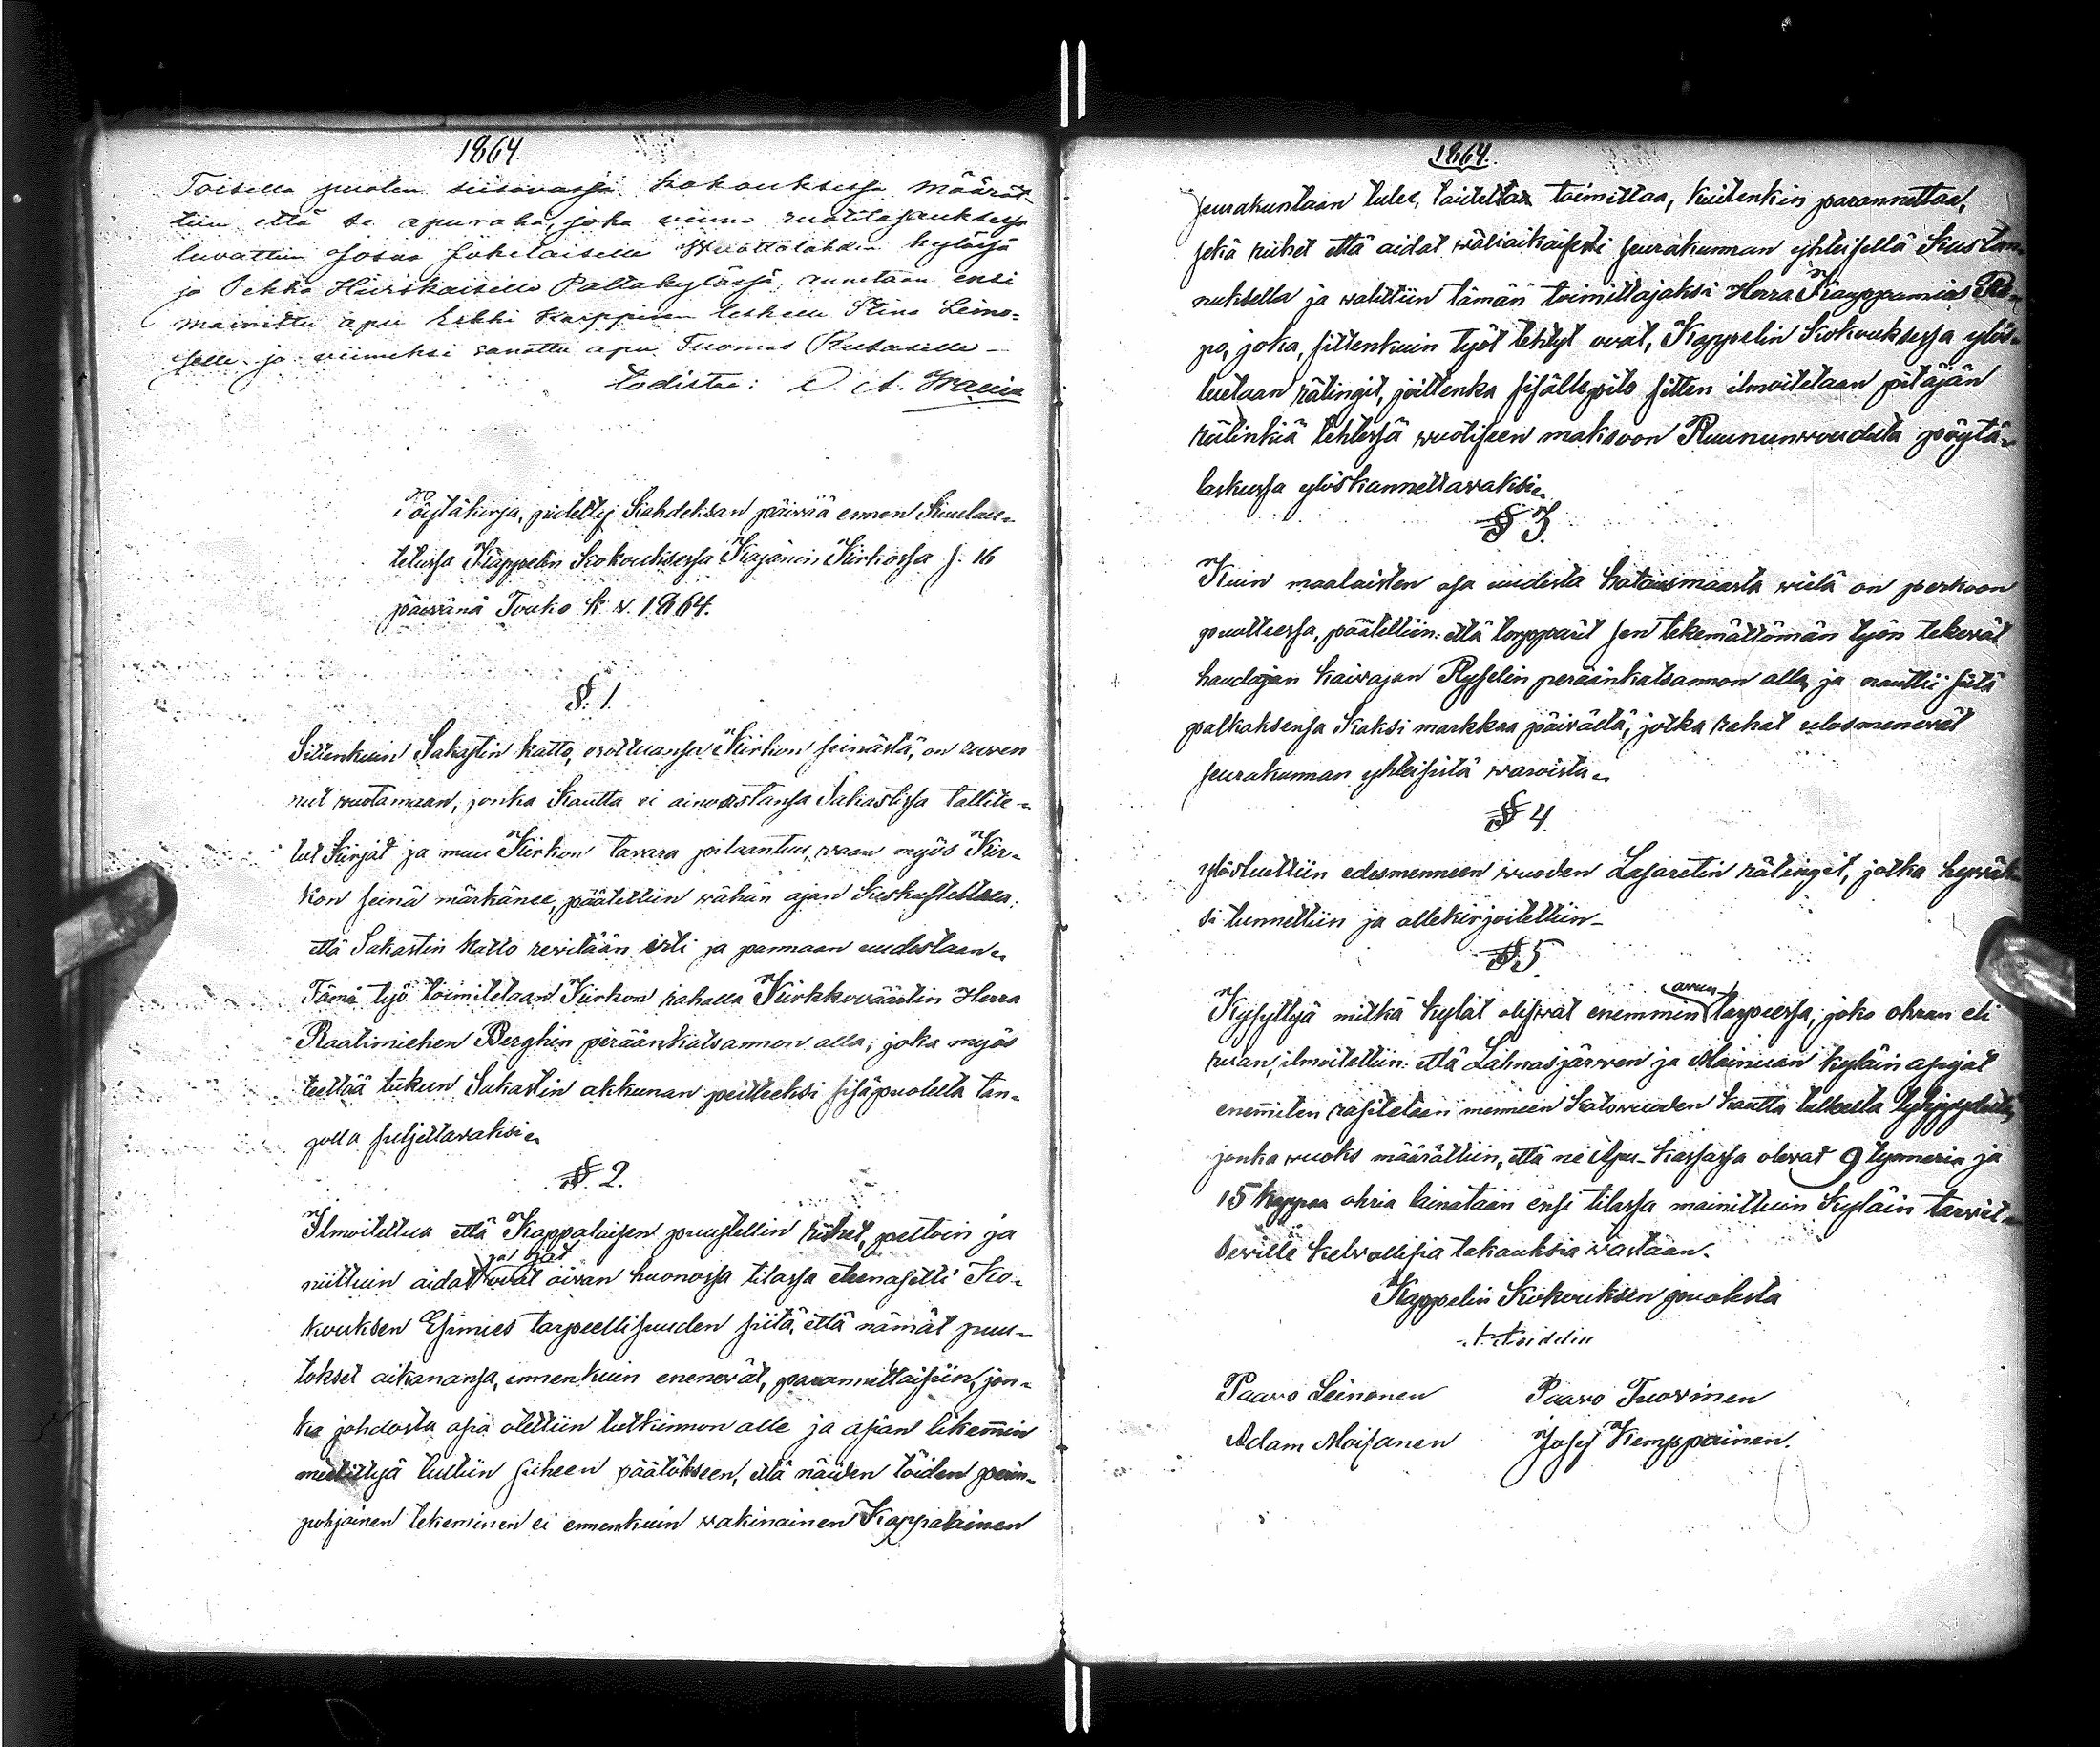 1864.
Toisella puolen seisovassa kokouksessa määrät-
tiin että se apuraha, joka viime ruotitasauksessa
luvattiin Josua Juhelaiselle Wuottolahden kylässä
ja Pekka Heiskaiselle Paltakylässä, annetaan ensi
mainittu apu Erkki Karppisen leskelle Stina Leino-
selle ja viimeksi sanottu apu Tuomas Kutaselle –
todistaa:
Pöytäkirja, pidetty kahdeksan päivää ennen kuulute-
telussa Kappelin kokouksessa Kajanin Kirkossa s. 16
päivänä Touko k. v. 1864.
§. 1.
Sittenkuin Sakastin katto, erottuansa Kirkon seinästä, on ruven
nut vuotamaan, jonka kautta ei ainoastansa Sakastissa tallite-
tut Kirjat ja muu Kirkon tavara pilaantuu, waan myös Kir-
kon seinä märkänee, päätettiin wähän ajan keskusteltua:
että Sakastin katto revitään irti ja pannaan uudestaan.
Tämä työ toimitetaan Kirkon rahalla Kirkkoväärtin Herra
Raatimiehen Berghin peräänkatsannon alla, joka myös
teettää lukun Sakastin akkunan peitteeksi sisäpuolelta tan-
golla suljettavaksi.
§. 2.
Ilmoitettua että Kappalaisen puustellin riihet, peltoin ja
niittuin aidat ovat aivan huonossa tilassa eteenasetti Ko-
kouksen Esimies tarpeellisuuden siitä, että nämät puu-
tokset aikanansa, ennenkuin enenevät, parannettaisiin, jon-
ka johdosta asia otettiin tutkinnon alle ja asian likemmin
mietittyä tultiin siiheen päätökseen, että näiden töiden perin-
pohjainen tekeminen ei ennenkuin wakinainen Kappalainen
1864.
seurakuntaan tulee, taideta toimittaa, kuitenkin parannettaa,
sekä riihet että aidat wäliaikaisesti seurakunnan yhteisellä kustan-
nuksella ja walittiin tämän toimittajaksi Herra Kauppamies Re-
po, joka, sittenkuin työt tehdyt ovat, Kappelin kokouksessa ylös-
luetaan rätingit, joittenka sisällepito sitten ilmoitetaan pitäjän
rätinkiä tehtessä wuotiseen maksoon Ruununwoudilta pöytä-
laskussa ylöskannettavaksi.
§ 3.
Kuin maalaisten osa uudesta hautausmaasta wielä on perkoon
puutteessa, päätettiin: että torpparit sen tekemättömän työn tekevät
haudajan kaivajan Ryselin peräänkatsannon alla, ja nauttii siitä
palkaksensa kaksi markkaa päivältä, jotka rahat ulosmenevät
seurakunnan yhteisistä waroista.
§ 4.
ylösluettiin edesmenneen wuoden Lasaretin rätingit, jotka hywäk-
si tunnettiin ja allekirjoitettiin –
§ 5.
Kysyttyä mitkä kylät olisivat enemmin avun tarpeessa, joko ohran eli
rahan, ilmoitettiin: että Lahnasjärven ja Mainuan kyläin asujat
enemmiten rasitetaan menneen katovuoden kautta tulleelta
jonka wuoks määrättiin, että ne Apu-Kassassa olevat 9 tynneriä ja
15 kappaa ohria lainataan ensi tilassa mainittuin kyläin tarvit-
seville kelvollisia takauksia wastaan.
Kappelin Kokouksen puolesta
Paavo Leinonen Paavo Tuovinen
Adam Moisanen Josef Kemppainen.